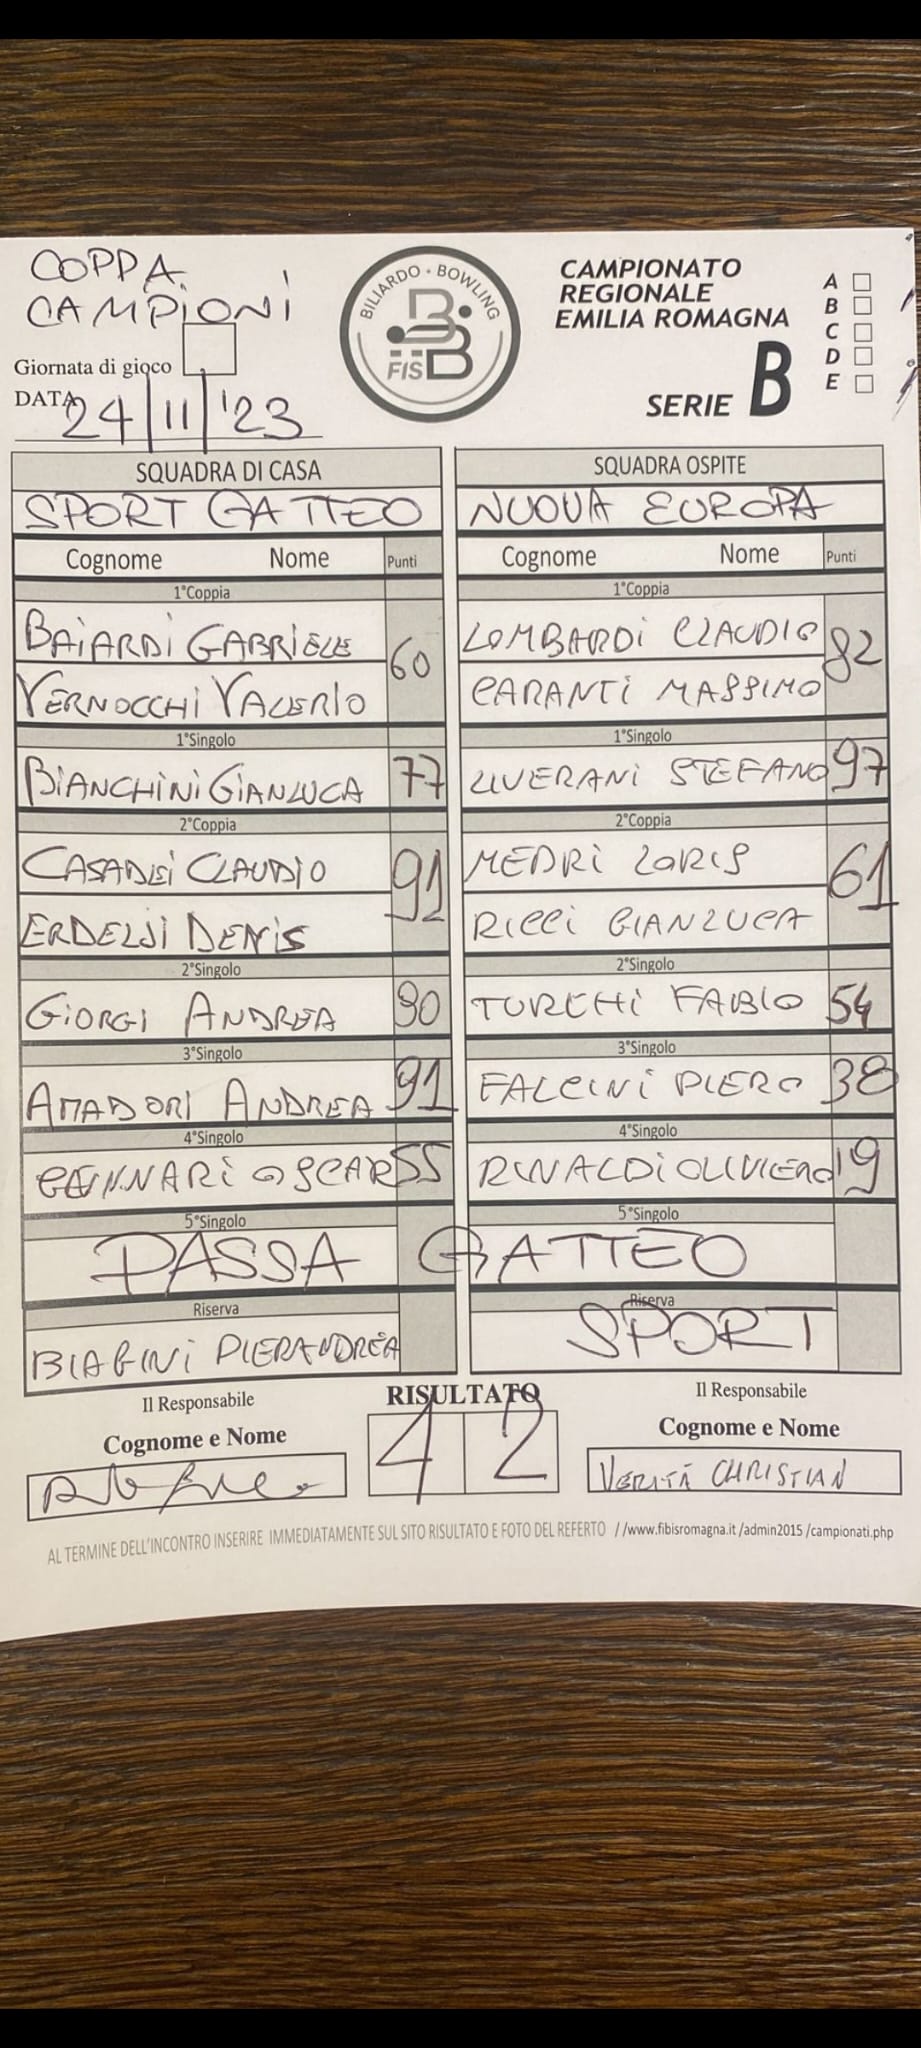 COPPA
CAMPIONI
BILIARDO • BOWLING
FIS
CAMPIONATO
REGIONALE
EMILIA ROMAGNA
SERIE B
A
B
C
D
E
Giornata di gioco
DATA 24/11/'23
SQUADRA DI CASA SQUADRA OSPITE
SPORT GATTEO NUOVA EUROPA
Cognome Nome Punti Cognome Nome Punti
1°Coppia 1°Coppia
BAIARDI GABRIELE 60 LOMBARDI CLAUDIO 82
VERNOCCHI VALERIO CARANTI MASSIMO
1°Singolo 1°Singolo
BIANCHINI GIANLUCA 77 LIVERANI STEFANO 97
2°Coppia 2°Coppia
CASADEI CLAUDIO 91 MEDRI LORIS 61
ERDELJI DENIS RICCI GIANLUCA
2°Singolo 2°Singolo
GIORGI ANDREA 90 TURCHI FABIO 54
3°Singolo 3°Singolo
AMADORI ANDREA 91 FALCINI PIERO 38
4°Singolo 4°Singolo
GENNARI OSCAR 55 RINALDI OLIVIERO 19
5°Singolo 5°Singolo
PASSA GATTEO
Riserva Riserva
BIAGINI PIERANDREA SPORT
Il Responsabile RISULTATO Il Responsabile
Cognome e Nome 4 2 Cognome e Nome
VERITÀ CHRISTIAN
AL TERMINE DELL'INCONTRO INSERIRE IMMEDIATAMENTE SUL SITO RISULTATO E FOTO DEL REFERTO //www.fibisromagna.it/admin2015/campionati.php